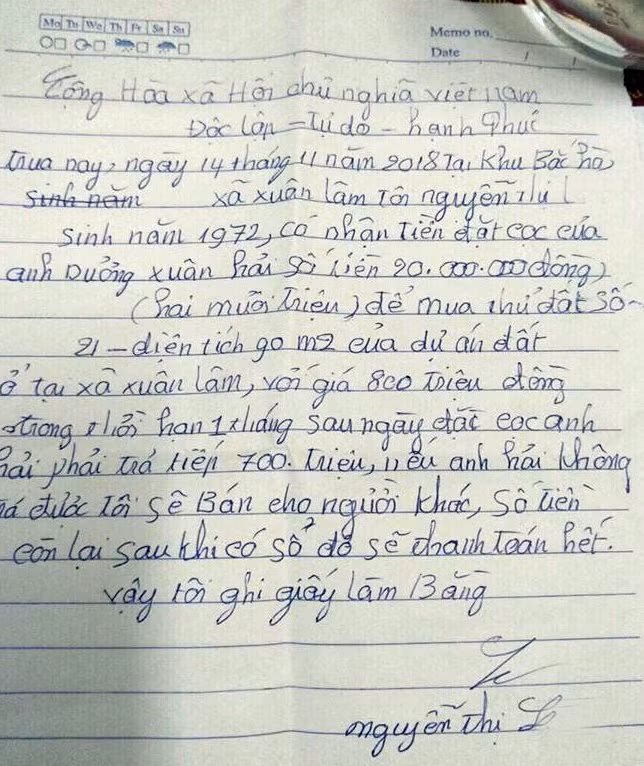 Mo Tu We Th Fr Sa Su
Memo no.
Date / /
Cộng Hòa xã Hội chủ nghĩa việt nam
Độc lập - Tự do - hạnh Phúc
Trưa nay, ngày 14 tháng 11 năm 2018 Tại Khu Bắc hà
sinh năm xã xuân lâm Tôi nguyễn Thị L
Sinh năm 1972, có nhận Tiền đặt cọc của
anh Dưỡng xuân hải số tiền 20.000.000 đồng)
(hai mươi Triệu) để mua thử đất số
21 - diện tích 90 m2 của dự án đất
ở tại xã xuân lâm, với giá 800 Triệu đồng
trong thời hạn 1 tháng sau ngày đặt cọc anh
hải phải trả tiếp 700. Triệu, nếu anh hải không
trả được Tôi sẽ Bán cho người khác, Số tiền
còn lại sau khi có sổ đỏ sẽ thanh Toán hết.
vậy tôi ghi giấy làm Bằng
nguyễn Thị L